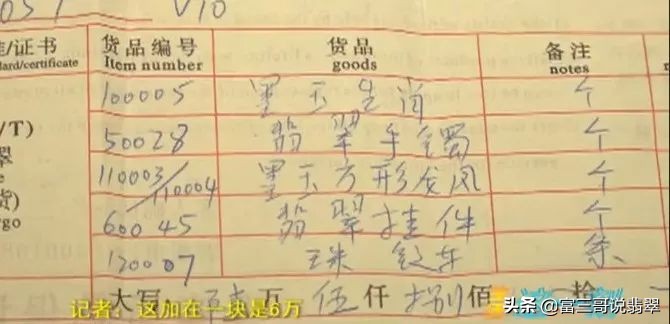 V10
/证书 货品编号 货品 备注
dard/certificate Item number goods notes
100005 墨玉生肖 个
/T) 50028 翡翠手镯 个
110003/110004 墨玉方形龙凤 个
货) 60045 翡翠挂件 个
rgo 120007 珠 条
大写: 万 伍仟 捌佰 拾
记者:这加在一块是6万
头条@富三哥说翡翠